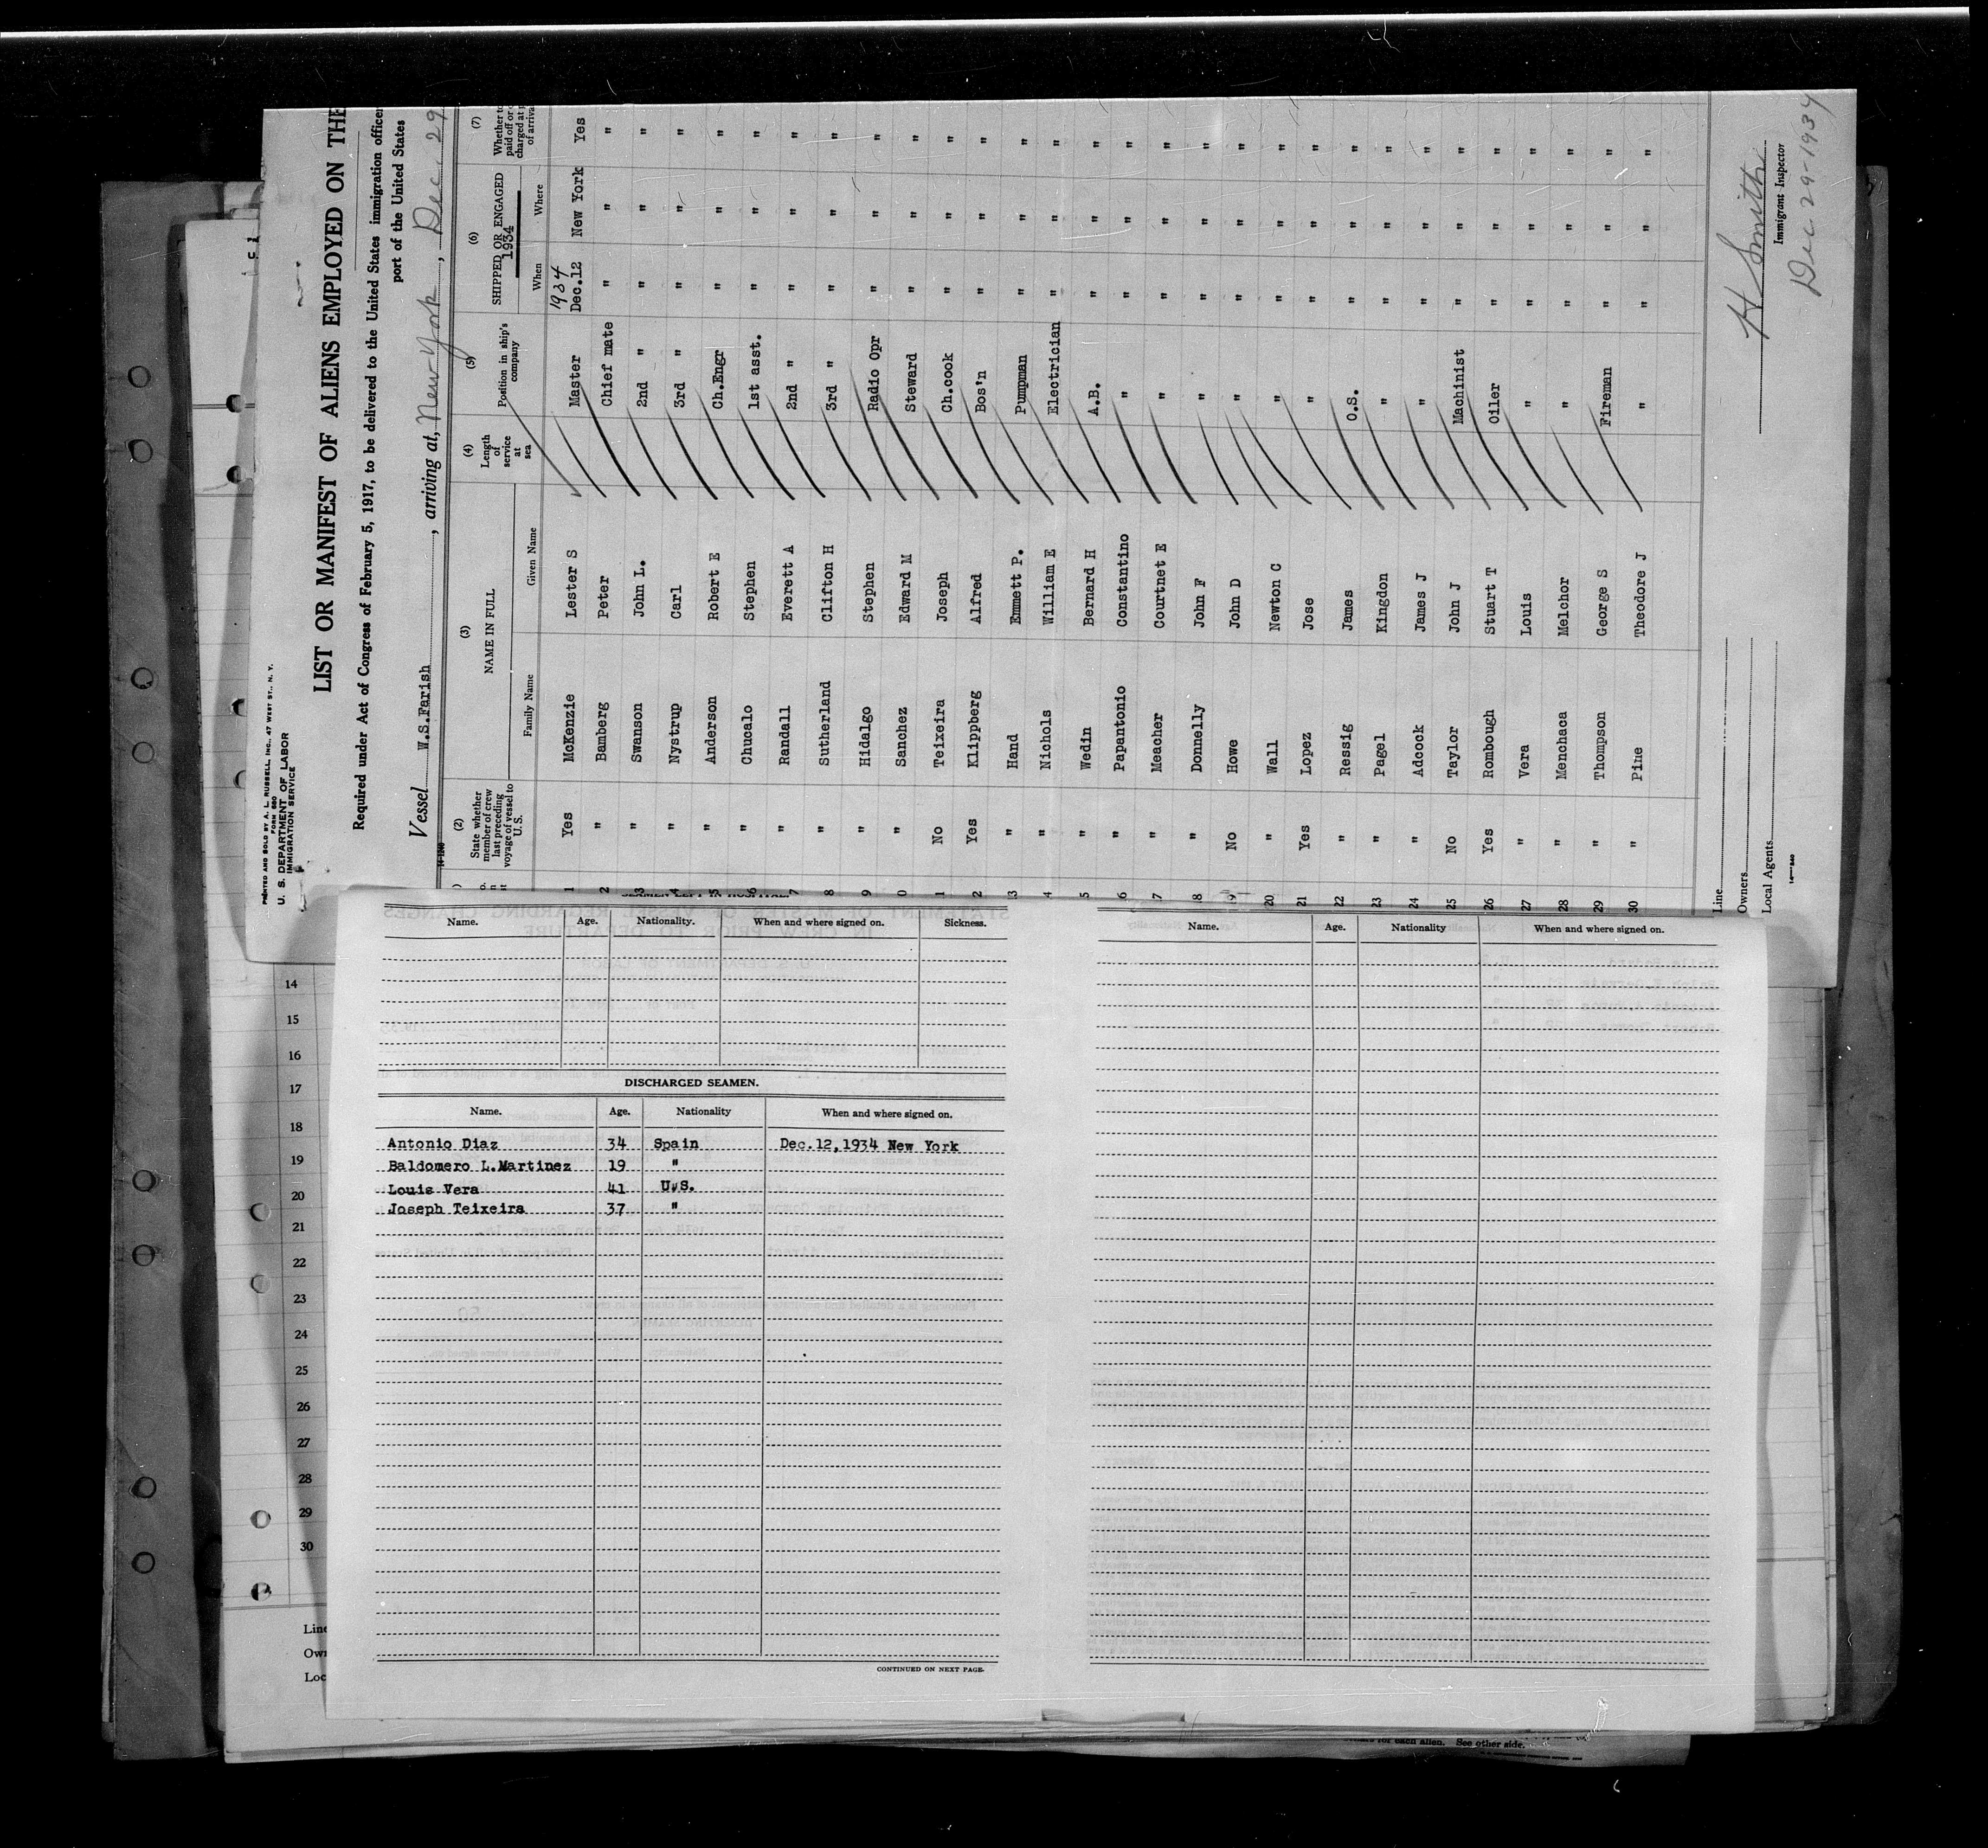 PRINTED AND SOLD BY A. L. RUSSELL, INC., 47 WEST ST., N. Y.
FORM 680
U. S. DEPARTMENT OF LABOR
IMMIGRATION SERVICE
LIST OR MANIFEST OF ALIENS EMPLOYED ON THE
Required under Act of Congress of February 5, 1917, to be delivered to the United States immigration officer
port of the United States
Vessel W.S.Farish, arriving at, New York, Dec. 29
(2) (3) (4) (5) (6) (7)
State whether member of crew last preceding voyage of vessel to U. S. NAME IN FULL Length of service at sea Position in ship's company SHIPPED OR ENGAGED 1934
Family Name Given Name When Where
1 Yes McKenzie Lester S Master 1934 Dec.12 New York Yes
2 " Bamberg Peter Chief mate " " "
3 " Swanson John L. 2nd " " " "
4 " Nystrup Carl 3rd " " " "
5 " Anderson Robert E Ch.Engr " " "
6 " Chucalo Stephen 1st asst. " " "
7 " Randall Everett A 2nd " " " "
8 " Sutherland Clifton H 3rd " " " "
9 " Hidalgo Stephen Radio Opr " " "
0 " Sanchez Edward M Steward " " "
1 No Teixeira Joseph Ch.cook " " "
2 Yes Klippberg Alfred Bos'n " " "
3 " Hand Emmett P. Pumpman " " "
4 " Nichols William E Electrician " " "
5 " Wedin Bernard H A.B. " " "
6 " Papantonio Constantino " " " "
17 " Meacher Courtnet E " " " "
18 " Donnelly John F " " " "
19 No Howe John D " " " "
20 " Wall Newton C " " " "
21 Yes Lopez Jose " " " "
22 " Ressig James O.S. " " "
23 " Pagel Kingdon " " " "
24 " Adcock James J " " " "
25 No Taylor John J Machinist " " "
26 Yes Rombough Stuart T Oiler " " "
27 " Vera Louis " " " "
28 " Menchaca Melchor " " " "
29 " Thompson George S Fireman " " "
30 " Pine Theodore J " " " "
Line
Owners
Local Agents
H Smith
Immigrant Inspector
Dec 29-1934
Name. Age. Nationality. When and where signed on. Sickness.
DISCHARGED SEAMEN.
Name. Age. Nationality When and where signed on.
Antonio Diaz 34 Spain Dec.12,1934 New York
Baldomero L.Martinez 19 "
Louis Vera 41 U.S.
Joseph Teixeira 37 "
CONTINUED ON NEXT PAGE.
Name. Age. Nationality When and where signed on.
14
15
16
17
18
19
20
21
22
23
24
25
26
27
28
29
30
Line
Own
Loc
for each alien. See other side.